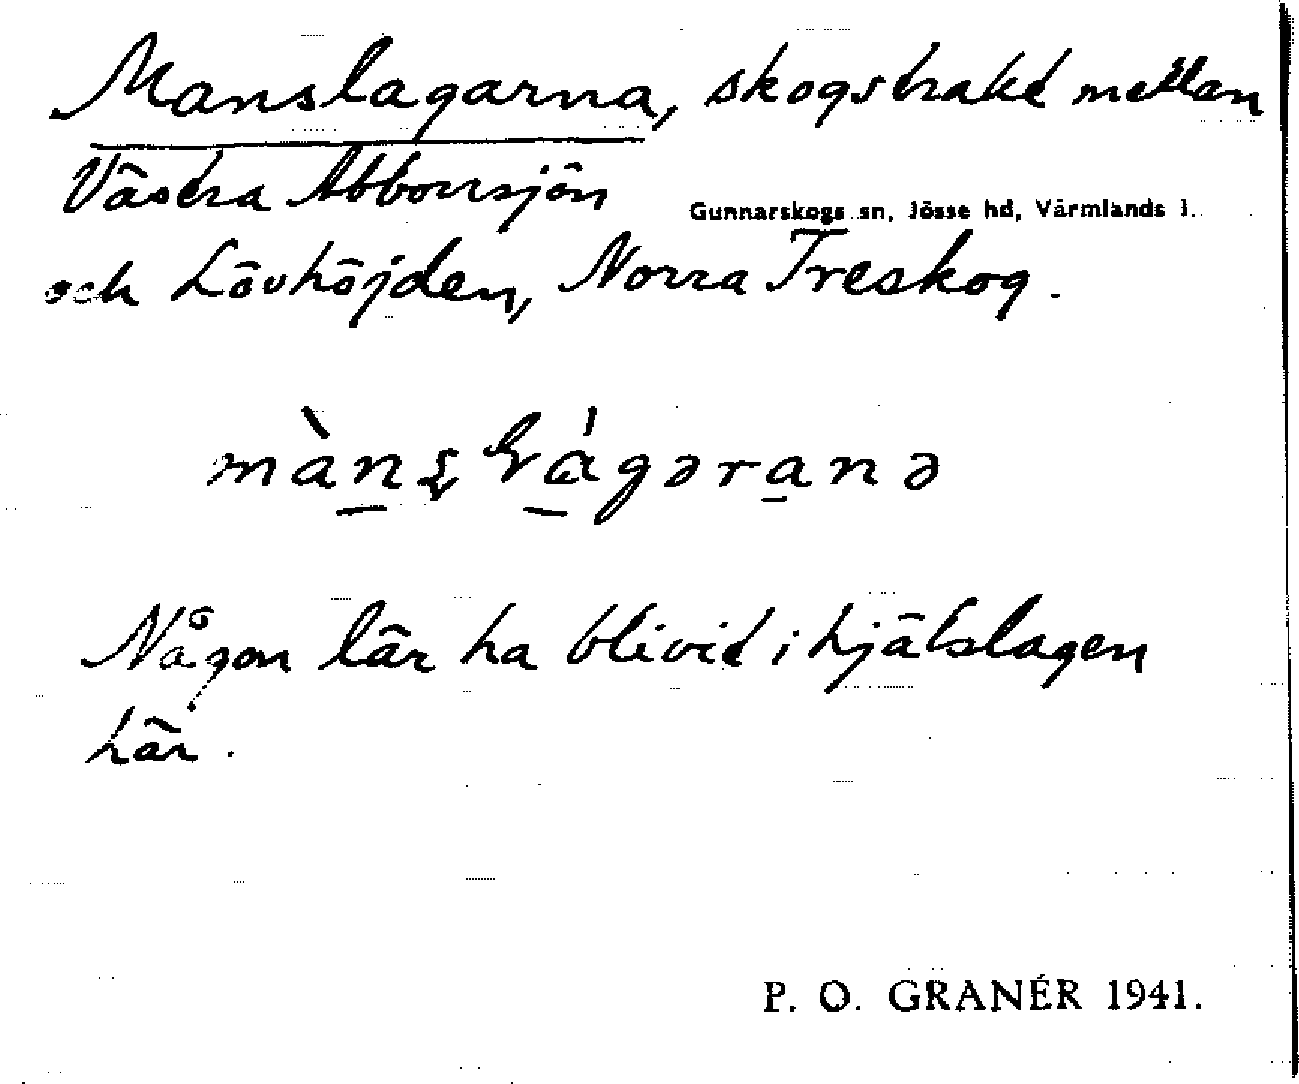 Manslagarna, skogstrakt mellan
Västra Abborrsjön
Gunnarskogs sn, Jösse hd, Värmlands l.
och Lövhöjden, Norra Treskog.
Någon lär ha blivit ihjälslagen
här.
P. O. GRANÉR 1941.